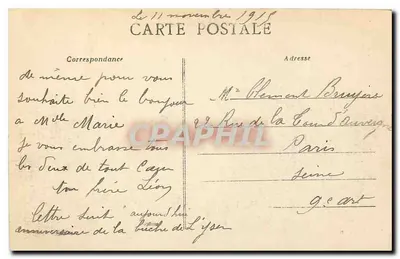 Le 11 novembre 1915
CARTE POSTALE
Correspondance
Adresse
de même pour vous
souhaite bien le bonjour
a Melle Marie
je vous embrasse tous
les deux de tout Cœur
ton frère Léon
lettre suit aujourd'hui
anniversaire de la de L'Yser
Mr Clément Bruyère
22 Rue de la Tour d'auvergne
Paris
Seine
9e art
CPAPHIL